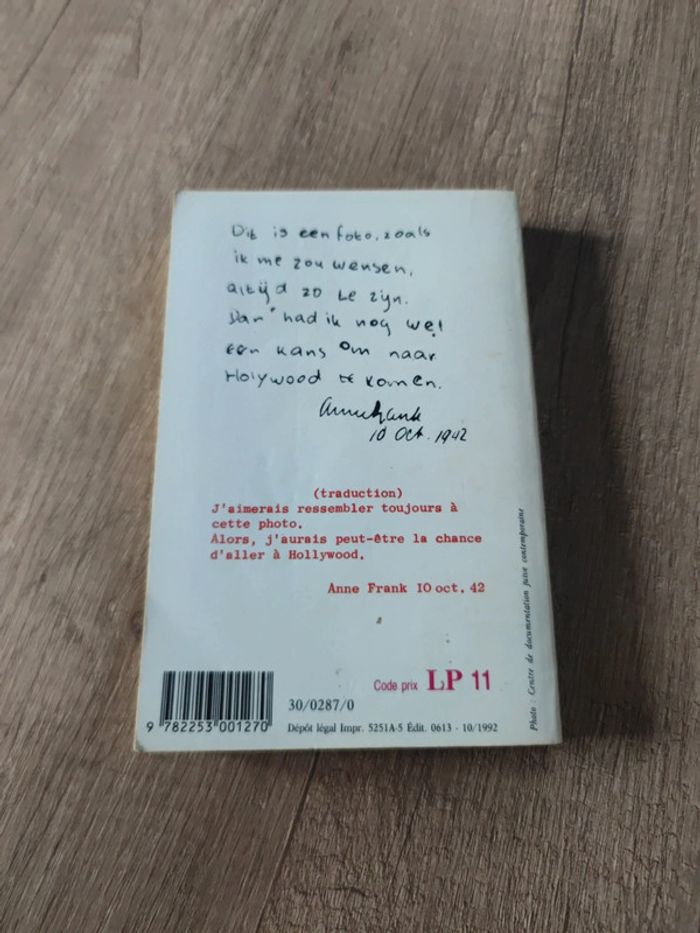 Dit is een foto, zoals
ik me zou wensen,
altijd zo te zijn.
Dan had ik nog wel
een kans om naar
Holywood te komen.
Annefrank
10 Oct. 1942
(traduction)
J'aimerais ressembler toujours à
cette photo.
Alors, j'aurais peut-être la chance
d'aller à Hollywood.
Anne Frank 10 oct. 42
Photo : Centre de documentation juive contemporaine
Code prix LP 11
30/0287/0
9 782253 001270
Dépôt légal Impr. 5251A-5 Édit. 0613 - 10/1992